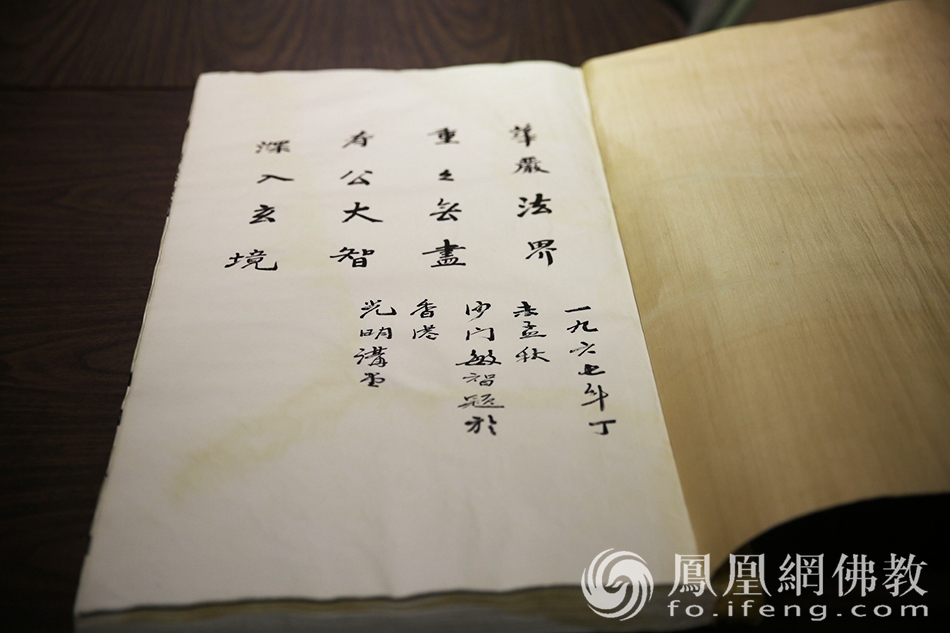 華嚴法界
重重無盡
寿公大智
深入玄境
一九六七年丁
未孟秋
沙门敏智题於
香港
光明講堂
鳳凰網佛教
fo.ifeng.com